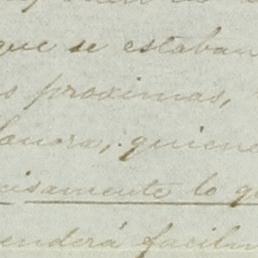 que se estaban
s proximas,
quiene
cisamente lo q
enderá facilm